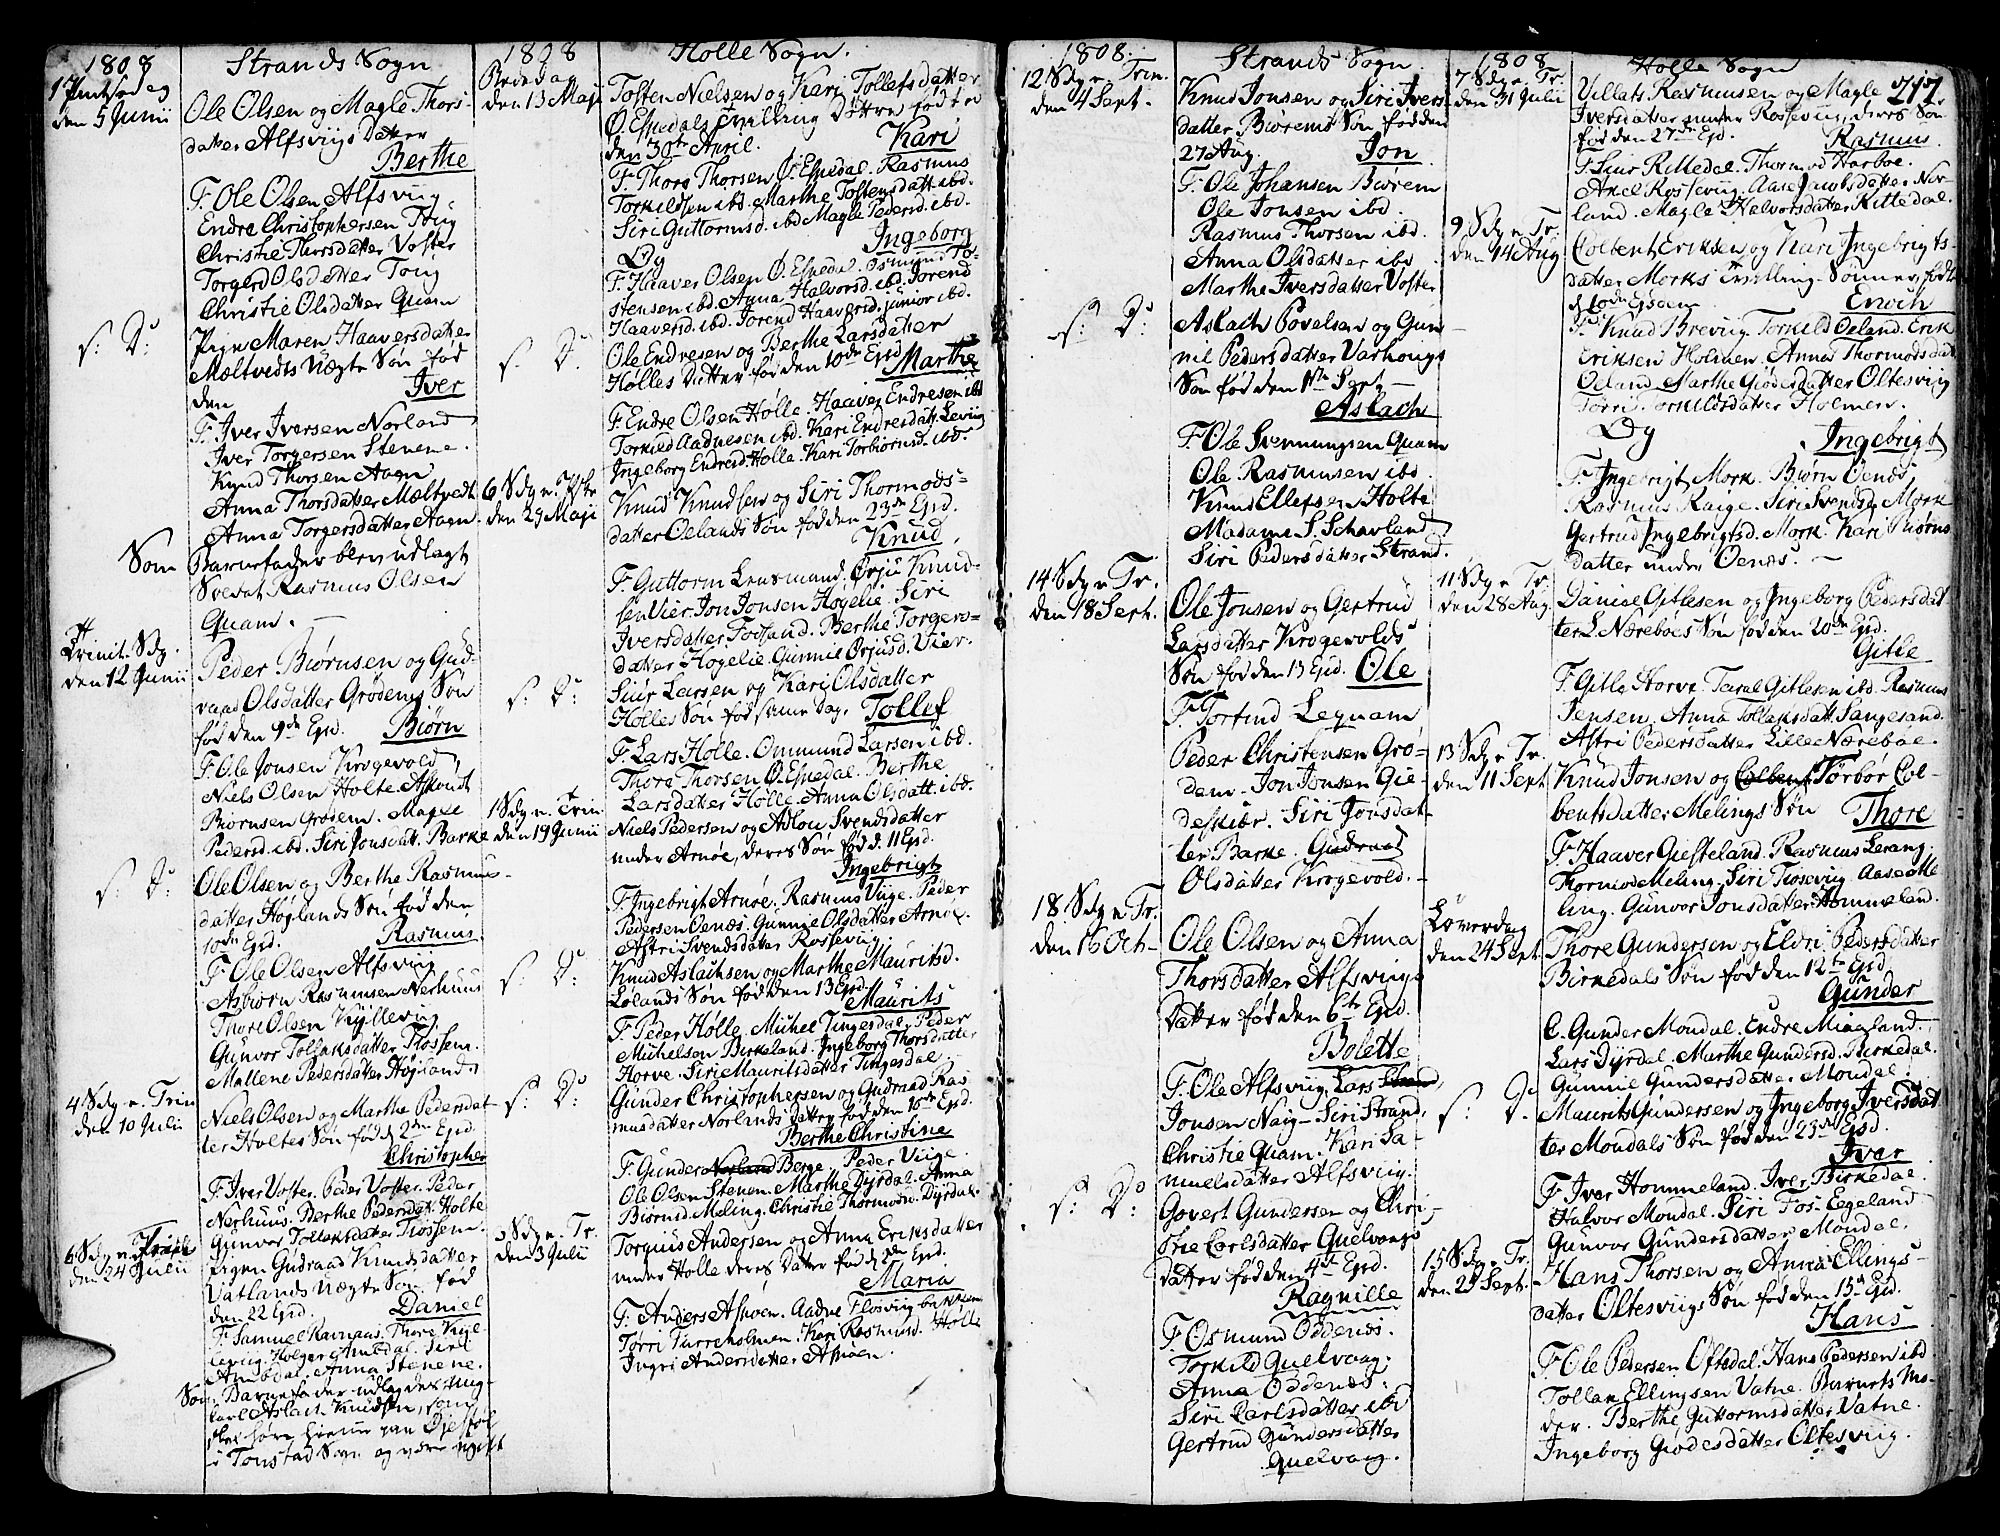 1808
Strands Sogn
den 5 Junii
Ole Olsen og Magle Thors-
datter Alfsviigs Datter
Berthe
F. Ole Olsen Alfsviig
Endre Christophersen Toug
Christie Thorsdatter Voster
Torgerd Olsdatter Toug
Christie Olsdatter Quam
s: D:
Pigen Maren Haaversdatter
Mæltvedts Uægte Søn fød
den
Iver
F. Iver Iversen Norland
Iver Torgersen Stenene.
Knud Thorsen Aagn
Anna Thorsdatter Mæltvedt
Anna Torgersdatter Aagn.
Som Barnefader blev udlagt
Soldat Rasmus Olsen
Quam.
Trinit. Sdg.
den 12 Junii
Peder Biørnsen og Gud-
raad Olsdatter Grødems Søn
fød den 9de Ejsd. Biørn
F. Ole Jonsen Krogevold,
Niels Olsen Holte Aslondt
Biørnsen Grødem. Magle
Pedersd. ibd. Siri Jonsdatt. Barke
s: D:
Ole Olsen og Berthe Rasmus-
datter Høglands Søn fød den
10de Ejsd. Rasmus.
F. Ole Olsen Alfsviig
Asbiørn Rasmusen Nerhuus
Thore Olsen Kylleviig
Gunvor Tollaksdatter Fiossem.
Mallene Pedersdatter Høgland.
4 Sdg. e. Trin
den 10 Julii
Niels Olsen og Marthe Pedersdat-
ter Holtes Søn fød d. 2den Ejsd.
Christopher
F. Iver Voster. Peder Voster. Peder
Nerhuus. Berthe Pedersdat. Holte
Gunvor Tollaksdatter Fiossem.
6 Sdg. e.
den 24 Julii
Pigen Gudraad Knudsdatter
Vatlands Uægte Søn fød
den 22 Ejsd. Daniel
F. Samuel Ravnaas. Thore Kyl-
leviig. Holger Amdal. Siri
Amdal. Anna Stenene.
Som Barnefader udlagdes Ung-
karl Aslach Knudsen, som
skal høre hjemme paa
i Tonstad Sogn og være ugift
1808
Holle Sogn.
Bededag
den 13 Maji
Tosten Nielsen og Kari Tollefsdatter
Ø. Espedals Tvilling Døttre fødte
den 30te April. Kari
F. Thore Thorsen Ø. Espedal. Rasmus
Torkildsen ibd. Marthe Tostensdatt. ibd.
Siri Guttormsd. ibd Magle Pedersd. ibd.
Og Ingeborg
F. Haaver Olsen Ø. Espedal. Osmund To-
stensen ibd. Anna Halvorsd. ibd. Jorend
Haaversd. ibd. Jorend Haaversd. junior ibd.
s. D:
Ole Endresen og Berthe Larsdatter
Hølles Datter fød den 10de Ejsd. Marthe
F. Endre Olsen Hølle. Haaver Endresen ibd
Torkild Aadnesen ibd. Kari Endresdatt. Leviig
Ingeborg Endresd. Holle. Kari Torbiørnsd. ibd.
6 Sdg. e.
den 29 Maji
Knud Knudsen og Siri Thormods-
datter Oelands Søn fød den 23de Ejsd.
Knud.
F. Guttorm Lensmand. Ørju Knud-
sen Vier. Jon Jonsen Høgelie. Siri
Iversdatter Fossand. Berthe Torgers-
datter Høgelie. Gunnil Ørjusd. Vier.
s: D:
Siur Larsen og Kari Olsdatter
Hølles Søn fød samme Dag. Tollef
F. Lars Holle. Ommund Larsen ibd.
Thore Thorsen Ø. Espedal. Berthe
Larsdatter Hølle. Anna Olsdatt. ibd.
1 Sdg. e. Trin
den 19 Junii
Niels Pedersen og Aslou Svendsdatter
under Arnøe, deres Søn fød d. 11 Ejsd.
Ingebrigt
F. Ingebrigt Arnøe. Rasmus Viige. Peder
Pedersen Oenæs. Gunnil Olsdatter Arnøe.
Astri Svendsdatter Rosseviig
s: D:
Knud Aslachsen og Marthe Mauritsd.
Lolands Søn fød den 13 Ejsd.
Maurits
F. Peder Hølle. Michel Tingesdal. Peder
Michelsen Birkeland. Ingeborg Thorsdatter
Horve. Siri Mauritsdatter Tingesdal.
s: D:
Gunder Christophersen og Gudraad Ras
musdatter Norlands Datter fød den 10de Ejsd.
Berthe Christine
F. Gunder Norland Berge. Peder Viige.
Ole Olsen Stenen. Marthe Dyrdal. Anna
Biørnsd. Meling. Christie Thormodsd. Dyrdal.
3 Sdg. e. Tr.
den 3 Julii
Torgius Andersen og Anna Eriksdatter
under Holle deres Datter fød d. 2den Ejsd.
Maria
F. Anders Aspøen. Aadne Flosviigbakken
Tørri Turreholmen. Kari Rasmusd. Hølle
Ingri Andersdatter Aspøen.
1808.
Strands Sogn.
12 Sdg. e. Trin.
den 4 Sept.
Knud Jonsen og Siri Ivers-
datter Biørems Søn fød den
27 Aug. Jon.
F. Ole Johansen Biørem
Ole Jonsen ibd.
Rasmus Thorsen ibd.
Anna Olsdatter ibd.
Marthe Iversdatter Voster
s: D:
Aslach Povelsen og Gun-
nil Pedersdatter Varhougs
Søn fød den 1ste Sept.
Aslach
F. Ole Svennungsen Quam
Ole Rasmusen ibd.
Knud Ellefsen Holte
Madame S. Schavland
Siri Pedersdatter Strand.
14 Sdg. e. Tr.
den 18 Sept.
Ole Jonsen og Gertrud
Larsdatter Krogevolds
Søn fød den 13 Ejsd. Ole
F. Tortind Lequam
Peder Christensen Grø-
dem. Jon Jonsen Gie-
deskiær. Siri Jonsdat-
ter Barke. Gudraad
Olsdatter Krogevold.
18 Sdg. e. Tr.
den 16 Oct.
Ole Olsen og Anna
Thorsdatter Alfsviigs
Datter fød den 6te Ejsd.
Bolette
F. Ole Alfsviig. Lars Strand,
Jonsen Naig. Siri Strand,
Christie Quam. Kari Sa-
muelsdatter Alfsviig.
s: D:
Govert Gundersen og Chri-
stie Carlsdatter Quelvaags
Datter fød den 4de Ejsd.
Ragnille
F. Osmund Oddenæs.
Torkild Quelvaag.
Anna Oddenæs.
Siri Carlsdatter ibd
Gertrud Gundersdatter
Quelvaag.
1808
Holle Sogn
217.
7 Sdg. e. Tr.
den 31 Julii
Villats Rasmusen og Magle
Iversdatter under Rosseviig, deres Søn
fød den 27de Ejsd. Rasmus.
F. Siur Rettedal. Thormod Harboe.
Axel Rosseviig. Aase Jacobsdatter Nor-
land. Magle Halvorsdatter Rettedal.
9 Sdg. e. Tr.
den 14 Aug
Colbent Eriksen og Kari Ingebrigts-
datter Morks Tvilling Sønner, fødte
d. 10de Ejsdem. Enoch
F. Knud Breviig Torkild Oeland. Erik
Eriksen Holmen. Anna Thormodsdat
Oeland. Marthe Giødesdatter Oltesviig
Tørri Torkildsdatter Holmen.
Og Ingebrigt
F. Ingebrigt Mork. Biørn Oenæs
Rasmus Raige. Siri Svendsd. Mork
Gertrud Ingebrigtsd. Mork. Kari Biørns
datter under Oenæs.
11 Sdg. e. Tr.
den 28 Aug.
Daniel Gitlesen og Ingeborg Pedersdat
ter L. Nærebøes Søn fød den 20de Ejsd.
Gitle
F. Gitle Horve. Taral Gitlesen ibd. Rasmus
Jensen. Anna Tollaksdatt. Sangesand.
Astri Pedersdatter Lille Nærebøe.
13 Sdg. e. Tr.
den 11 Sept.
Knud Jonsen og Colbent Tørbør Col-
bentsdatter Melings Søn Thore
F. Haaver Giesteland. Rasmus Lerang.
Thormod Meling. Siri Fioseviig. Aase Me
ling. Gunvor Jonsdatter Hommeland.
Løverdag
den 24 Sept.
Thore Gundersen og Eldri Pedersdatter
Birkedals Søn fød den 12te Ejsd.
Gunder
F. Gunder Mondal. Endre Miagland.
Lars Dyrdal. Marthe Gundersd. Birkedal.
Gunnil Gundersdatter Mondal.
s: D.
Maurits Gundersen og Ingeborg Iversdat
ter Mondals Søn fød den 23de Ejsd.
Iver
F. Iver Hommeland. Iver Birkedal.
Halvor Mondal. Siri Tos. Eegeland
Gunvor Gundersdatter Mondal.
15 Sdg. e. Tr.
den 25 Sept.
Hans Thorsen og Anna Ellings-
datter Oltesviigs Søn fød den 15de Ejsd.
Hans
F. Ole Pedersen Oftedal. Hans Pedersen ibd
Tollak Ellingsen Vatne. Barnets Mo-
der. Berthe Guttormsdatter Vatne.
Ingeborg Giødesdatter Oltesviig.